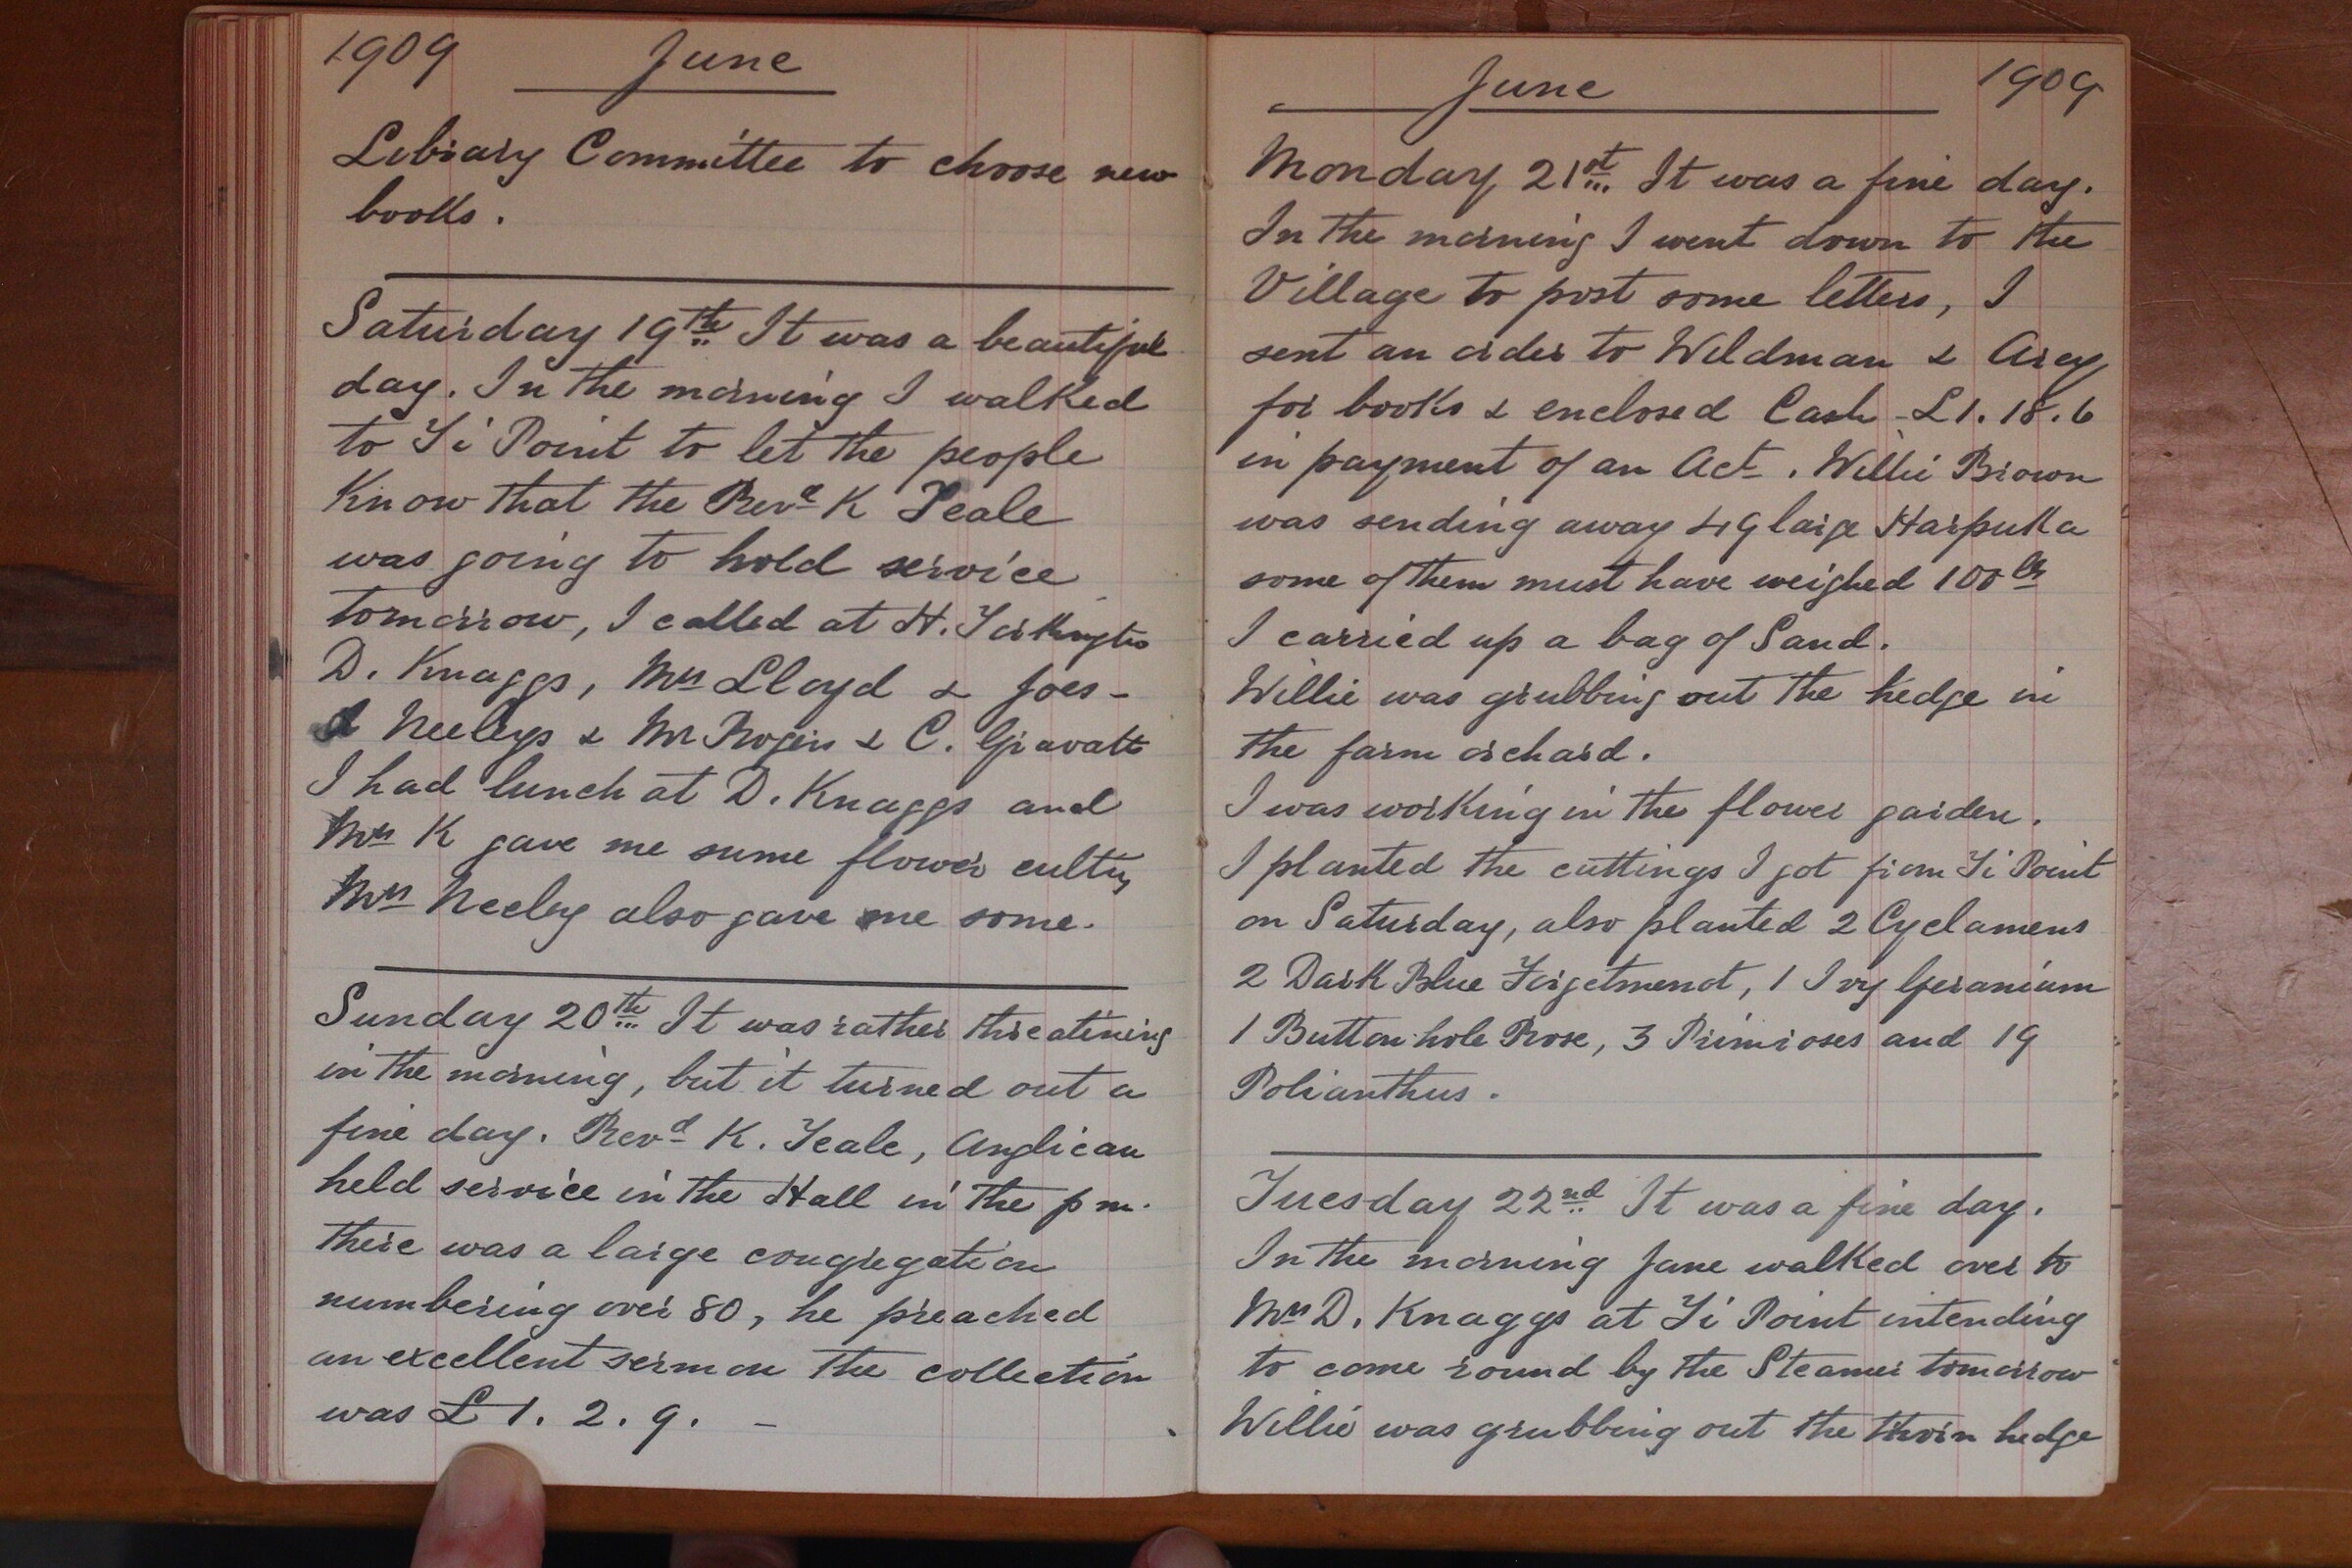 1909 June
Library Committee to choose new
books.
Saturday 19th It was a beautiful
day. In the morning I walked
to Ti Point to let the people
Know that the Revd K Teale
was going to hold service
tomorrow, I called at H. Torkingtons
D. Knaggs, Mrs Lloyd & Joes-
& Neeleys & Mr Rogers & C. Gravatt
I had lunch at D. Knaggs and
Mrs K gave me sume flower
Mrs Neeley also gave me some.
Sunday 20th It was rather threatening
in the morning, but it turned out a
fine day. Revd K. Teale, Anglican
held service in the Hall in the pm.
there was a large congregation
numbering over 80, he preached
an excellent sermon the collection
was £1. 2. 9. -
June 1909
Monday 21st It was a fine day.
In the morning I went down to the
Village to post some letters, I
sent an order to Wildman & Arey
for books & enclosed Cash £1. 18. 6
in payment of an Act. Willie Brown
was sending away 49 large Harpuka
some of them must have weighed 100 lbs
I carried up a bag of Sand.
Willie was grubbing out the hedge in
the farm orchard.
I was working in the flower garden.
I planted the cuttings I got from Ti Point
on Saturday, also planted 2 Cyclamens
2 Dark Blue Forgetmenot, 1 Ivy Geranium
1 Button hole Rose, 3 Primroses and 19
Polianthus.
Tuesday 22nd It was a fine day.
In the morning Jane walked over to
Mrs D. Knaggs at Ti Point intending
to come round by the Steamer tomorrow
Willie was grubbing out the thorn hedge